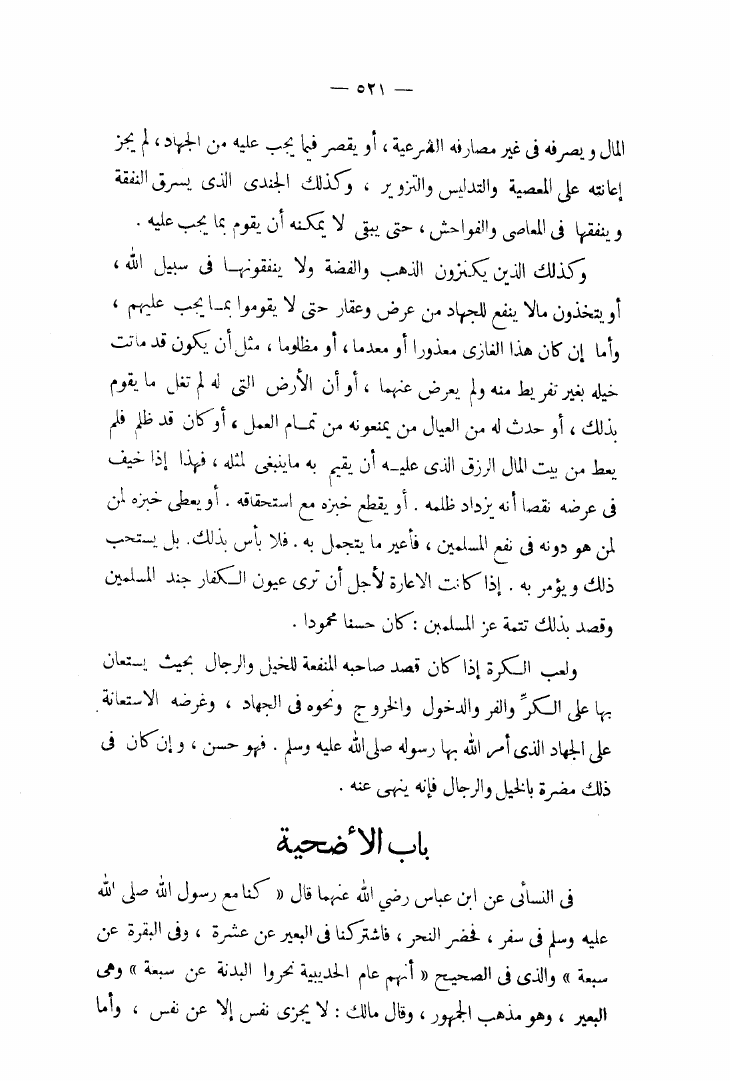 — ٥٢١ —
المال ويصرفه فى غير مصارفه الشرعية ، أو يقصر فيما يجب عليه من الجهاد ، لم يجز
إعانته على المعصية والتدليس والتزوير ، وكذلك الجندى الذى يسرق النفقة
وينفقها فى المعاصى والفواحش ، حتى يبقى لا يمكنه أن يقوم بما يجب عليه .
وكذلك الذين يكنزون الذهب والفضة ولا ينفقونها فى سبيل الله ،
أو يتخذون مالا ينفع للجهاد من عرض وعقار حتى لا يقوموا بما يجب عليهم ،
وأما إن كان هذا الغازى معذورا أو معدما ، أو مظلوما ، مثل أن يكون قد ماتت
خيله بغير تفريط منه ولم يعرض عنهما ، أو أن الأرض التى له لم تغل ما يقوم
بذلك ، أو حدث له من العيال من يمنعونه من تمام العمل ، أو كان قد ظلم فلم
يعط من بيت المال الرزق الذى عليه أن يقيم به ماينبغى لمثله ، فهذا إذا خيف
فى عرضه نقصا أنه يزداد ظلمه . أو يقطع خبزه مع استحقاقه . أو يعطى خبزه لمن
لمن هو دونه فى نفع المسلمين ، فأعير ما يتجمل به . فلا بأس بذلك. بل يستحب
ذلك ويؤمر به . إذا كانت الاعارة لأجل أن ترى عيون الكفار جند المسلمين
وقصد بذلك تتمة عز المسلمين : كان حسنا محمودا .
ولعب الكرة إذا كان قصد صاحبه المنفعة للخيل والرجال بحيث يستعان
بها على الكرِّ والفر والدخول والخروج ونحوه فى الجهاد ، وغرضه الاستعانة
على الجهاد الذى أمر الله بها رسوله صلى الله عليه وسلم . فهو حسن ، وإن كان فى
ذلك مضرة بالخيل والرجال فإنه ينهى عنه .
باب الأضحية
فى النسائى عن ابن عباس رضي الله عنهما قال « كنا مع رسول الله صلى الله
عليه وسلم فى سفر ، فحضر النحر ، فاشتركنا فى البعير عن عشرة ، وفى البقرة عن
سبعة » والذى فى الصحيح « أنهم عام الحديبية نحروا البدنة عن سبعة » وهى
البعير ، وهو مذهب الجمهور ، وقال مالك : لا يجزى نفس إلا عن نفس ، وأما